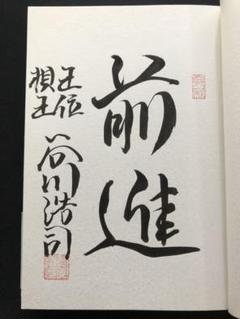 前進
王位
棋王
谷川浩司